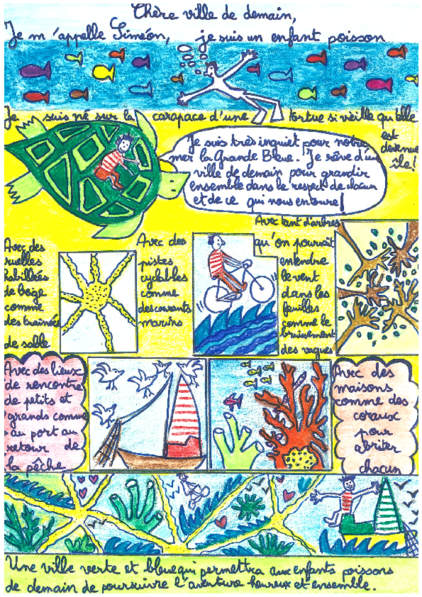 Chère ville de demain,
Je m'appelle Siméon, je suis un enfant poisson
Je suis né sur la carapace d'une tortue si vieille qu'elle
est
devenue
île!
Je suis très inquiet pour notre
mer la Grande Bleue. Je rêve d'une
ville de demain pour grandir
ensemble dans le respect de chacun
et de ce qui nous entoure!
Avec des
ruelles
habillées
de beige
comme
des traînées
de sable
Avec des
pistes
cyclables
comme
des courants
marins
Avec tant d'arbres
qu'on pourrait
entendre
le vent
dans les
feuilles
comme le
bruissement
des vagues
Avec des lieux
de rencontre
de petits et
grands comme
au port au
retour de
la pêche
Avec des
maisons
comme des
coraux
pour
abriter
chacun
Une ville verte et bleue qui permettra aux enfants poissons
de demain de poursuivre l'aventure heureux et ensemble.